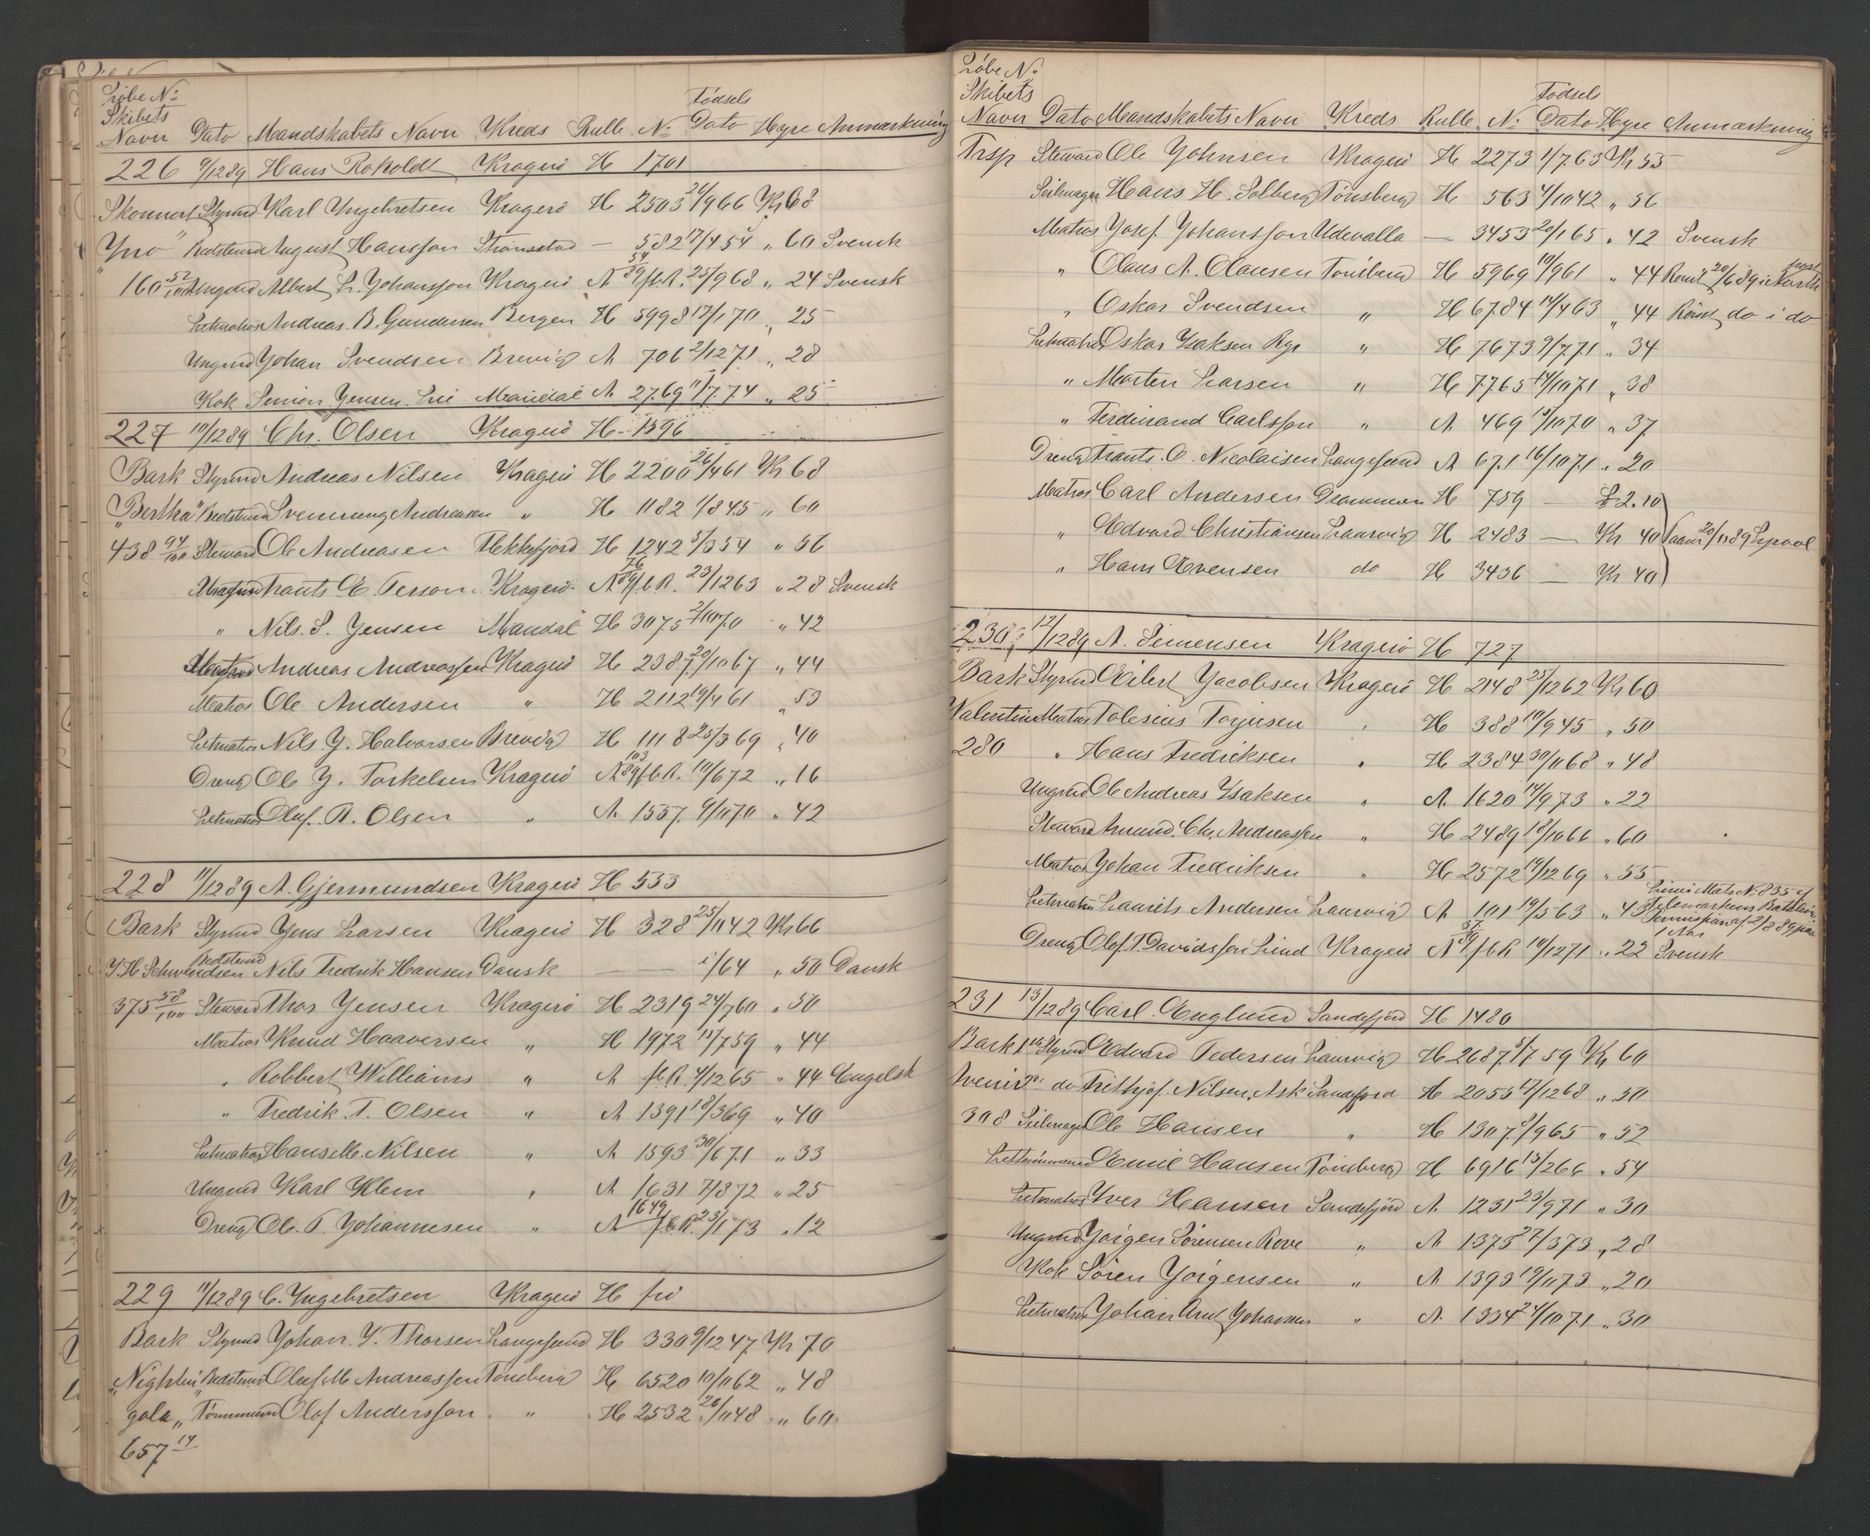 Løbe No
Skibets Fødsels
Navn Dato Mandskabets Navn Kreds Rulle No Dato Hyre Anmærkning
226 9/12 89 Hans Roholdt Kragerø H 1701
Skonnert Styrmd Karl Yngebretsen Kragerø H 2503 26/9 66 Kr 68
"Yno" Bedstmd August Hansson Strømstad — 582 17/4 54 " 60 Svensk
160 52/100 Ungmd Albert L. Johansson Kragerø A 54/89 fl.R. 25/9 68 " 24 Svensk
Letmatros Andreas B. Gundersen Bergen H 5998 17/1 70 " 25
Ungmd Johan Svendsen Brevig A 706 2/12 71 " 28
Kok Simon Jensen Lie Mandal A 2769 11/7 74 " 25
227 10/12 89 Chr. Olsen Kragerø H 1596
Bark Styrmd Andreas Nilsen Kragerø H 2200 26/4 61 Kr 68
"Bertha" Bedstmd Svennung Andreasen " H 1182 1/8 45 " 60
438 94/100 Steward Ole Andreasen Flekkefjord H 1242 5/3 54 " 56
Frants E. Person Kragerø A 76/89 fl.R. 23/12 63 " 28 Svensk
" Nils S. Jensen Mandal H 3075 2/10 70 " 42
Andreas Andreassen Kragerø H 2387 20/10 67 " 44
Matros Ole Andersen " H 2112 19/4 61 " 53
Letmatros Nils J. Halvorsen Brevig H 1118 25/3 69 " 40
Dreng Ole J. Torkelsen Kragerø A 103/89 fl.R. 10/6 72 " 16
Letmatros Oluf R. Olsen " A 1557 9/11 70 " 42
228 11/12 89 A. Gjermundsen Kragerø H 533
Bark Styrmd Jens Larsen Kragerø H 328 25/11 42 Kr 66
J H Schwendsen Bedstmd Nils Fredrik Hansen Dansk — — 1/1 64 " 50 Dansk
375 58/100 Steward Thor Jensen Kragerø H 2319 24/7 60 " 50
Matros Knud Haaversen " H 1972 11/7 59 " 44
" Robbert Williams " A fl.R. 4/12 65 " 44 Engelsk
" Fredrik T. Olsen " A 1391 18/3 69 " 40
Letmatros Hans M. Nilsen " A 1593 30/6 71 " 33
Ungmd Karl Klem " A 1631 7/8 72 " 25
Dreng Ole T. Johannesen " A 1649 fl.R. 23/1 73 " 12
229 11/12 89 C. Yngebretsen Kragerø H fri
Bark Styrmd Johan J. Thorsen Langesund H 330 9/12 47 Kr 70
"Nightin Bedstmd Oluf M Andreassen Tønsberg H 6520 10/11 62 " 48
gale" Tømmermd Olof Andersson " H 2532 26/11 48 " 60
657 14
Løbe No
Skibets Fødsels
Navn Dato Mandskabets Navn Kreds Rulle No Dato Hyre Anmærkning
Trsp Steward Ole Johnsen Kragerø H 2273 1/7 63 Kr 55
Seilmager Hans H. Solberg Tønsberg H 563 4/10 42 " 56
Matros Josef Johansson Udevalla — 3453 20/1 65 " 42 Svensk
" Olaus A. Olausen Tønsberg H 5969 10/9 61 " 44 Rømt 20/6 89 i
" Oskar Svendsen " H 6784 14/4 63 " 44 Rømt do i do
Letmatros Oskar Isaksen Rye " H 7673 9/7 71 " 34
" Morten Larsen " H 7765 14/10 71 " 38
" Ferdinand Carlsson " A 469 19/10 70 " 37
Dreng Frants O. Nicolaisen Langesund A 671 16/10 71 " 20
Matros Carl Andersen Drammen H 759 — £ 2.10
" Edvard Christiansen Laurvig H 2483 — Kr 40 20/11 89 Lpool
" Hans Evensen do H 3436 — Kr 40
230 12/12 89 A. Simensen Kragerø H 727
Bark Styrmd Eilert Jacobsen Kragerø H 2148 25/12 62 Kr 60
Valentin Matros Tolesius Torjusen " H 388 10/9 45 " 50
280 " Hans Fredriksen " H 2384 30/11 68 " 48
Ungmd Ole Andreas Isaksen " A 1620 14/9 73 " 22
Steward Amund Chr. Andreassen " H 2489 12/10 66 " 60
Matros Johan Fredriksen " H 2572 19/12 69 " 55
Letmatros Laurits Andersen Laurvig A 101 19/5 63 " 45 No 835 Telemarkens Permission af 2/8 89 paa 1 Aar
Dreng Olof T. Davidsson Lind Kragerø A 57/89 fl.R 10/12 71 " 22 Svensk
231 13/12 89 Carl Englund Sandefjord H 1480
Bark 1ste Styrmd Edvard Pedersen Laurvig H 2687 5/7 59 Kr 60
Avenir 2n do Frithjof Nilsen Ask Sandefjord H 2053 17/12 68 " 50
308 Seilmager Ole Hansen " H 1307 8/9 65 " 52
Emil Hansen Tønsberg H 6916 15/2 66 " 54
Letmatros Iver Hansen Sandefjord A 1231 23/9 71 " 30
Ungmd Jørgen Sørensen Rove " A 1375 27/3 73 " 28
Kok Søren Jørgensen " A 1393 19/11 73 " 20
Letmatros Johan Johansen " A 1334 24/10 71 " 30